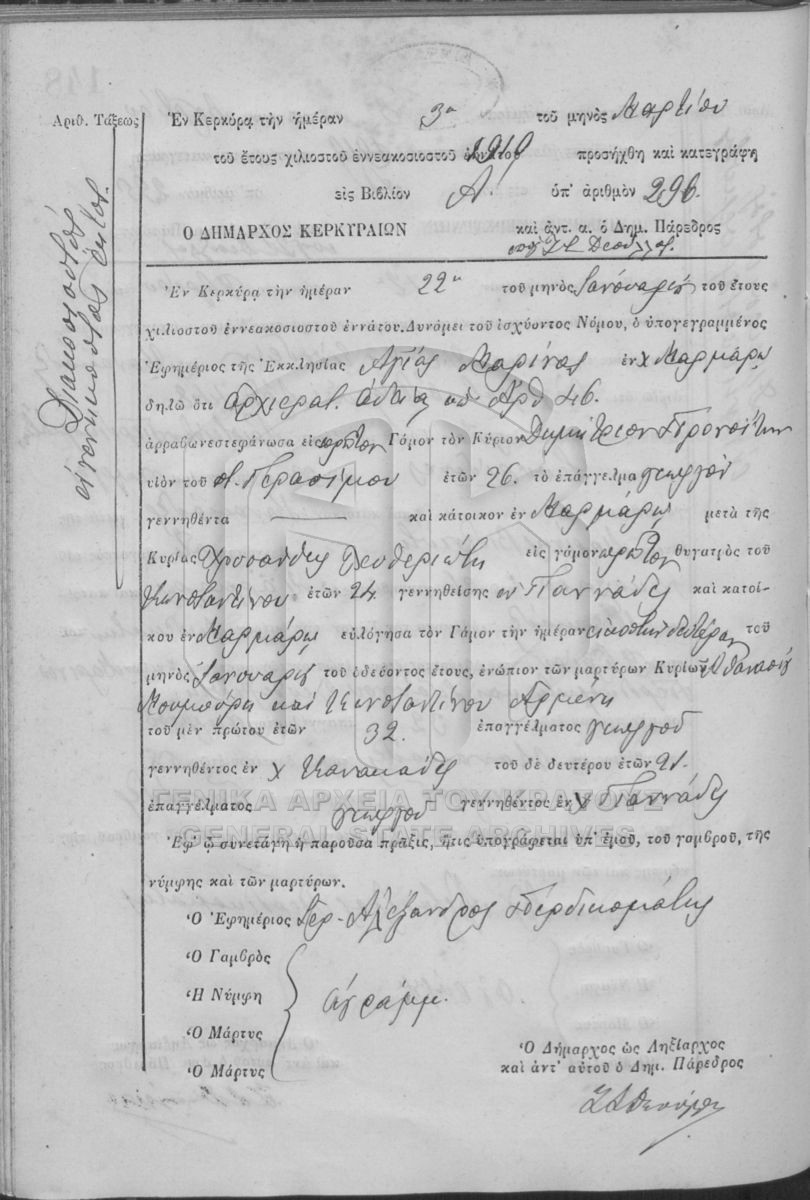 Ἀριθ. Τάξεως
Διακοσιοστὸς
ἐνενηκοστὸς ἕκτος.
Ἐν Κερκύρᾳ τὴν ἡμέραν 3η τοῦ μηνὸς Μαρτίου
τοῦ ἔτους χιλιοστοῦ ἐννεακοσιοστοῦ 1919 προσήχθη καὶ κατεγράφη
εἰς Βιβλίον Α. ὑπ' ἀριθμὸν 296.
Ο ΔΗΜΑΡΧΟΣ ΚΕΡΚΥΡΑΙΩΝ καὶ ἀντ. α. ὁ Δημ. Πάρεδρος
Ἐν Κερκύρᾳ τὴν ἡμέραν 22α τοῦ μηνὸς Ἰανουαρίου τοῦ ἔτους
χιλιοστοῦ ἐννεακοσιοστοῦ ἐννάτου. Δυνάμει τοῦ ἰσχύοντος Νόμου, ὁ ὑπογεγραμμένος
Ἐφημέριος τῆς Ἐκκλησίας Ἁγίας Μαρίνας ἐν χ Μαρμάρῳ
δηλῶ ὅτι ἀρχιερατ. ἀδείᾳ ὑπ' Ἀρθ 46.
ἀρραβωνεστεφάνωσα εἰς πρῶτον Γάμον τὸν Κύριον Δημήτριον
υἱὸν τοῦ π. Γερασίμου ἐτῶν 26. τὸ ἐπάγγελμα γεωργὸν
γεννηθέντα — καὶ κάτοικον ἐν Μαρμάρῳ μετὰ τῆς
Κυρίας Χρυσάνθης Λευθεριώτη εἰς γάμον πρῶτον θυγατρὸς τοῦ
Κωνσταντίνου ἐτῶν 24. γεννηθείσης ἐν Γιαννάδες καὶ κατοί-
κου ἐν Μαρμάρῳ εὐλόγησα τὸν Γάμον τὴν ἡμέραν εἰκοστὴν δευτέραν τοῦ
μηνὸς Ἰανουαρίου τοῦ ὁδεύοντος ἔτους, ἐνώπιον τῶν μαρτύρων Κυρίων Ἀθανασίου
καὶ Κωνσταντίνου
τοῦ μὲν πρώτου ἐτῶν 32. ἐπαγγέλματος γεωργοῦ
γεννηθέντος ἐν χ Κανακάδες τοῦ δὲ δευτέρου ἐτῶν 21.
ἐπαγγέλματος γεωργοῦ γεννηθέντος ἐν χ Γιαννάδες
ΓΕΝΙΚΑ ΑΡΧΕΙΑ ΤΟΥ ΚΡΑΤΟΥΣ
GENERAL STATE ARCHIVES
Ἐφ' ᾧ συνετάγη ἡ παροῦσα πρᾶξις, ἥτις ὑπογράφεται ὑπ' ἐμοῦ, τοῦ γαμβροῦ, τῆς
νύμφης καὶ τῶν μαρτύρων.
Ὁ Ἐφημέριος Ἱερ-Ἀλέξανδρος Περδικομάτης
Ὁ Γαμβρὸς
Ἡ Νύμφη ἀγράμμ.
Ὁ Μάρτυς
Ὁ Μάρτυς
Ὁ Δήμαρχος ὡς Ληξίαρχος
καὶ ἀντ' αὐτοῦ ὁ Δημ. Πάρεδρος